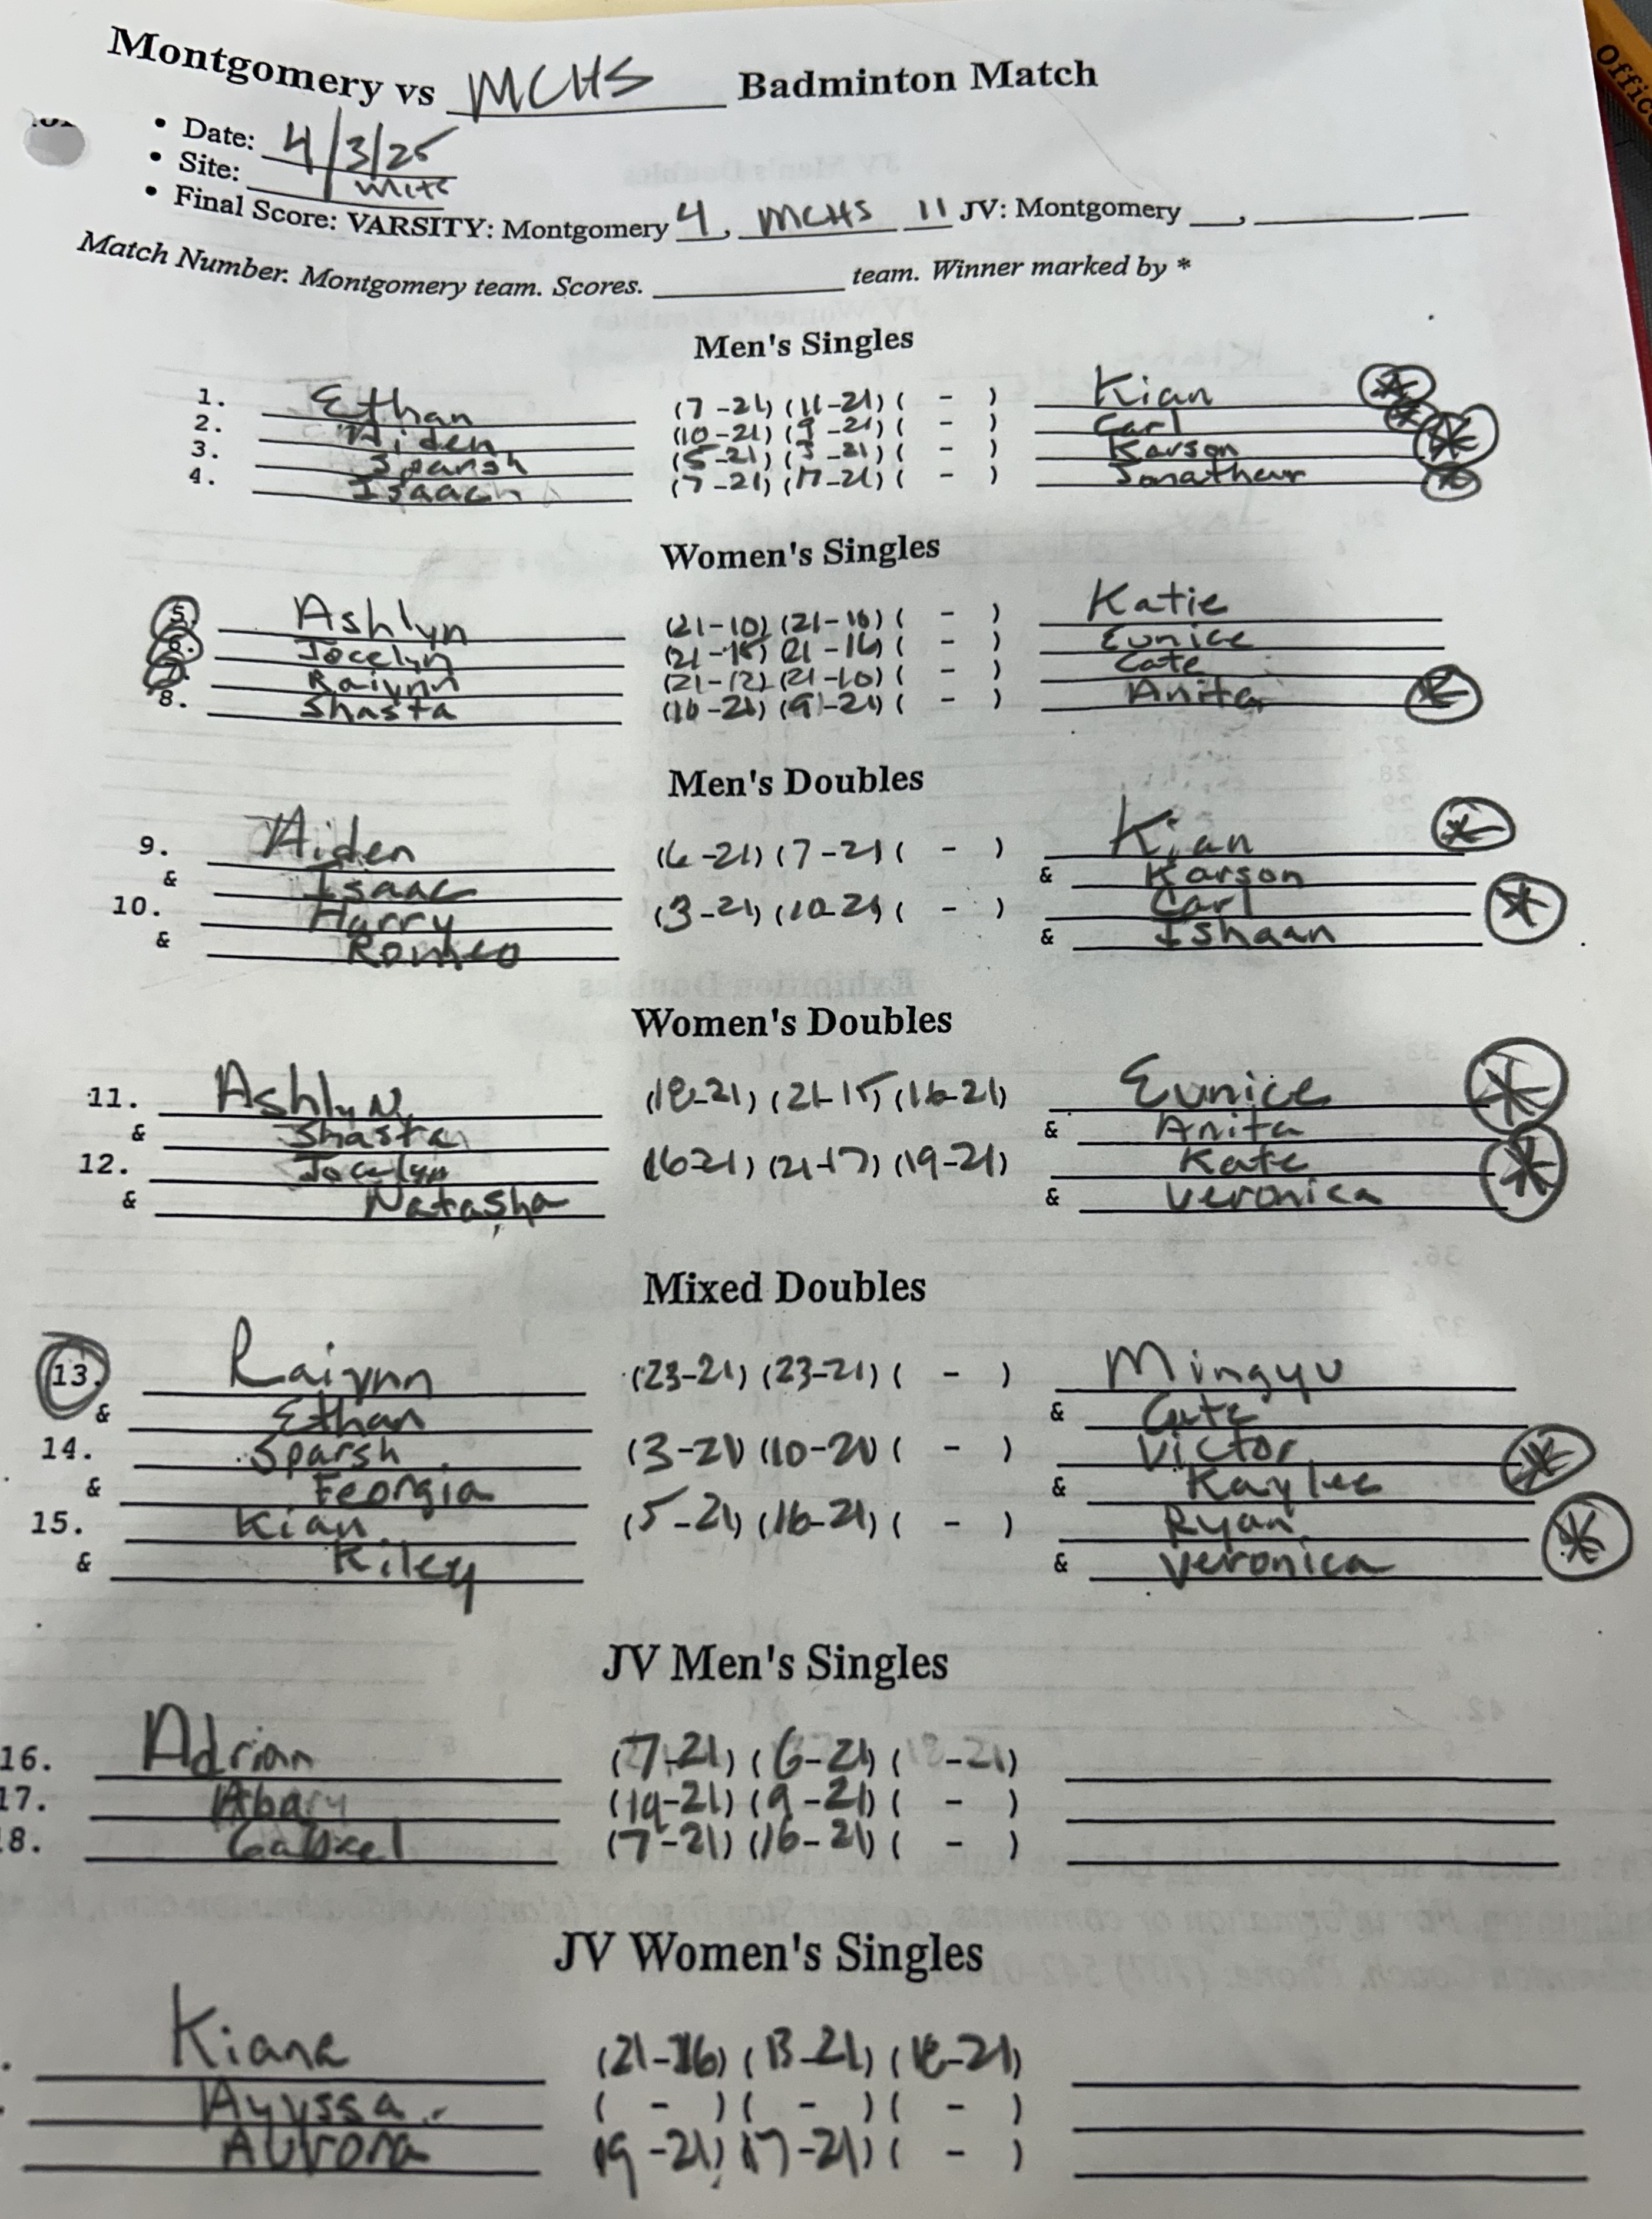 Montgomery vs MCHS Badminton Match
• Date: 4/3/25
• Site: MITC
• Final Score: VARSITY: Montgomery 4, MCHS 11 JV: Montgomery ___, ___
Match Number. Montgomery team. Scores. ___ team. Winner marked by *
Men's Singles
1. Ethan (7-21) (11-21) ( - ) Kian *
2. Aiden (10-21) (9-21) ( - ) Carl *
3. Sparsh (5-21) (5-21) ( - ) Karson *
4. Isaac (7-21) (17-21) ( - ) Jonathan *
Women's Singles
5. Ashlyn (21-10) (21-10) ( - ) Katie
6. Jocelyn (21-15) (21-16) ( - ) Eunice
7. Raiynn (21-12) (21-10) ( - ) Cate
8. Shasta (16-21) (9-21) ( - ) Anita *
Men's Doubles
9. Aiden (6-21) (7-21) ( - ) Kian *
& Isaac & Karson
10. Harry (3-21) (10-21) ( - ) Carl *
& Romeo & Ishaan
Women's Doubles
11. Ashlyn (18-21) (21-15) (16-21) Eunice *
& Shasta & Anita
12. Jocelyn (16-21) (21-17) (19-21) Kate *
& Natasha & Veronica
Mixed Doubles
13. Raiynn (23-21) (23-21) ( - ) Mingyu
& Ethan & Cate
14. Sparsh (3-21) (10-21) ( - ) Victor *
& Feorgia & Kaylee
15. Kian (5-21) (16-21) ( - ) Ryan *
& Kiley & Veronica
JV Men's Singles
16. Adrian (7-21) (6-21) ( -21)
17. (19-21) (9-21) ( - )
18. Gabriel (7-21) (16-21) ( - )
JV Women's Singles
Kiana (21-16) (13-21) (18-21)
Ayyssa ( - ) ( - ) ( - )
Aurora (9-21) (17-21) ( - )
Offic